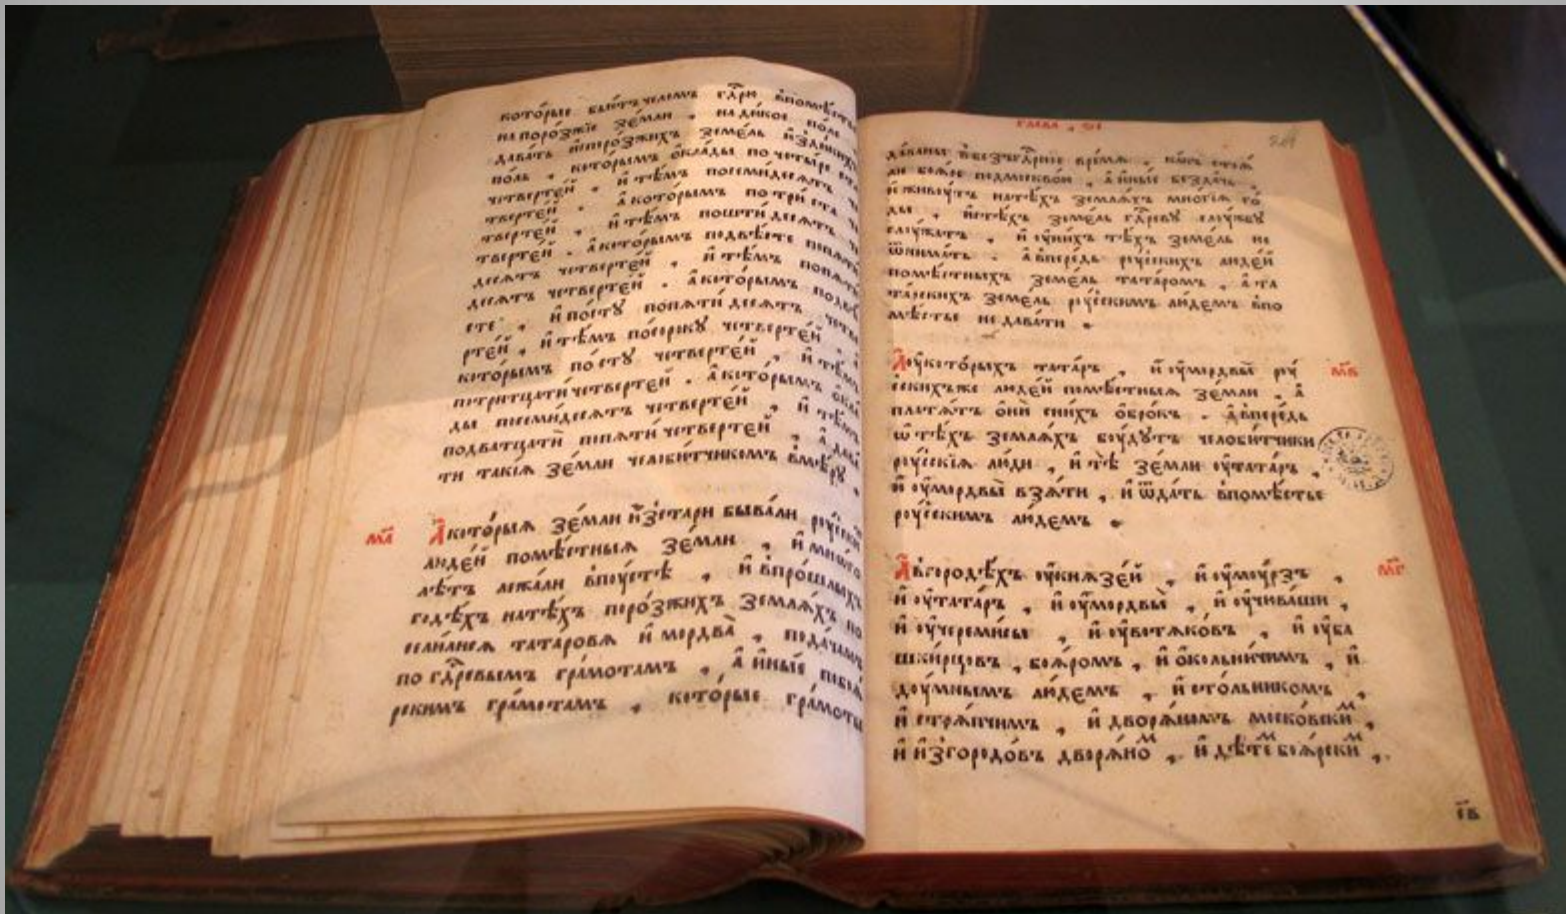 которые бьютъ челомъ гдⷭ҇рю впомѣстье
на порозжїе земли , на дикое поле
давать ипорозжихъ земель издикихъ
поль , которымъ оклады по четыре ста
четвертей . и тѣмъ посемидесятъ че
твертей . а которымъ по три ста че
твертей . и тѣмъ пошти десятъ че
твертей . а которымъ подвѣсте попяти
десятъ четвертей , и тѣмъ попяти
десятъ четвертей . а которымъ подву
сте , и по сту попяти десятъ четве
ртей , и тѣмъ по сороку четвертей
которымъ по сту четвертей , и тѣмъ
потритцати четвертей . а которымъ окла
ды посемидесятъ четвертей , и тѣмъ
подватцати ипяти четвертей , а дава
ти такїя земли челобитчикомъ вмѣру .
м҃а А которыя земли изстари бывали рускихъ
людей помѣстныя земли , и много
лѣтъ лежали впустѣ , и впрошлыхъ
годѣхъ натѣхъ порозжихъ земляхъ по
селилися татаровя и мордва , подачамъ
по гдⷭ҇ревымъ грамотамъ , а иные побоя
рскимъ грамотамъ , которые грамоты
глава , ѕ҃і
даваны вбезъгдⷭ҇рное время , какъ стоя
ли бояре подмосквою , а иные бездачь ,
и живутъ натѣхъ земляхъ многїя го
ды , истѣхъ земель гдⷭ҇реву службу
служатъ , и оу нихъ тѣхъ земель не
ѿнимать . а впередь рускихъ людей
помѣстныхъ земель татаромъ , а та
тарскихъ земель рускимъ людемъ впо
мѣстье не давати .
А оу которыхъ татаръ , и оу мордвы ру м҃в
скихъже людей помѣстныя земли , а
платятъ они сних оброкъ . а впередь
ѡ тѣхъ земляхъ будутъ челобитчики
рускїя люди , и тѣ земли оу татаръ ,
и оу мордвы взяти , и ѿдать впомѣстье
рускимъ людемъ .
А вгородѣхъ оу князей , и оу мурзъ , м҃г
и оу татаръ , и оу мордвы , и оу чювашы ,
и оу черемисы , и оу вотяковъ , и оу ба
шкирцовъ , бояромъ , и околничимъ , и
думнымъ людемъ , и столникомъ ,
и стряпчимъ , и дворяномъ московскиⷨ ,
и изгородовъ дворяноⷨ , и дѣтеⷨ боярскиⷨ ,